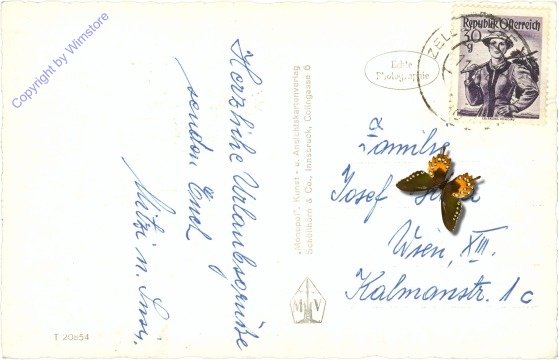 Copyright by Wimstore
Herzliche Urlaubsgrüße
senden Euch
Mitzi u.
"Monopol", Kunst- u. Ansichtskartenverlag
Schöllhorn & Co., Innsbruck, Colingasse 5
Echte
Photographie
ZELL
Republik Österreich
30 g
Familie
Josef
Wien, XII.
Kalmanstr. 1c
M V
T 20854